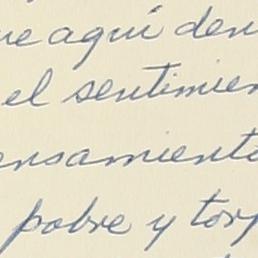 ue aquí den
el sentimien
ensamiento
pobre y torp